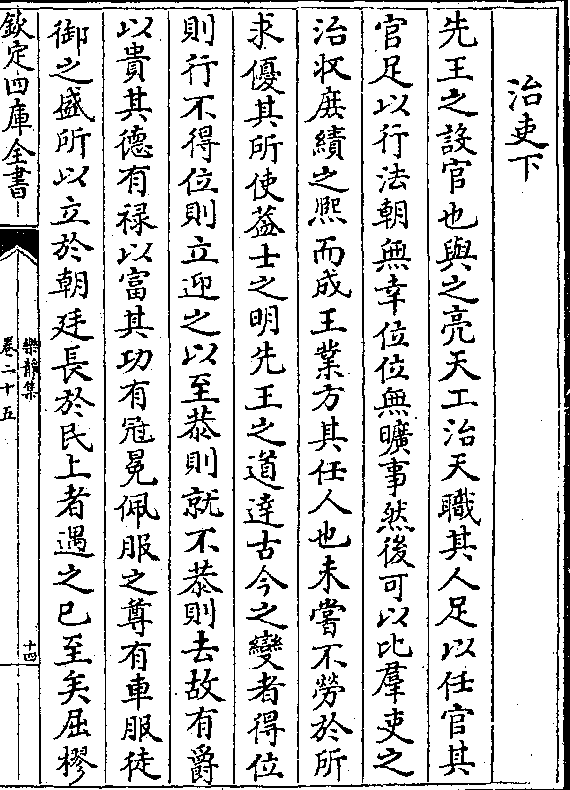 治吏下
先王之設官也與之亮天工治天職其人足以任官其
官足以行法朝無幸位位無曠事然後可以比羣吏之
治收庶績之熙而成王業方其任人也未嘗不勞於所
求優其所使葢士之明先王之道達古今之變者得位
則行不得位則立迎之以至恭則就不恭則去故有爵
以貴其德有禄以富其功有冠冕佩服之尊有車服徒
御之盛所以立於朝廷長於民上者遇之已至矣屈樛
欽定四庫全書
樂靜集
卷二十五
十四